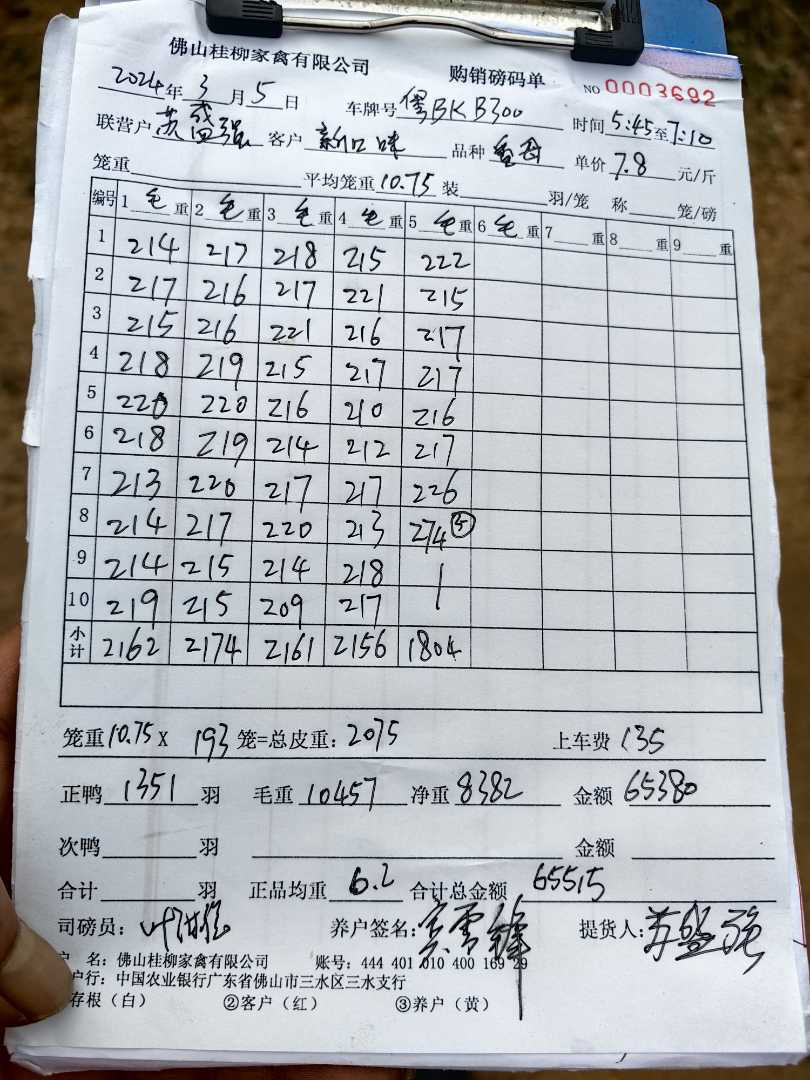 佛山桂柳家禽有限公司 购销磅码单 NO 0003692
2024年3月5日 车牌号 BKB300 时间5:45至7:10
联营户 苏盛强 客户 新口味 品种 单价7.8元/斤
笼重 平均笼重10.75装 羽/笼 称 笼/磅
编号 1毛重 2毛重 3毛重 4毛重 5毛重 6毛重 7 重 8 重 9 重
1 214 217 218 215 222
2 217 216 217 221 215
3 215 216 221 216 217
4 218 219 215 217 217
5 220 220 216 210 216
6 218 219 214 212 217
7 213 220 217 217 226
8 214 217 220 213 274⑤
9 214 215 214 218 /
10 219 215 209 217 /
小计 2162 2174 2161 2156 1804
笼重10.75X 193笼=总皮重:2075 上车费135
正鸭1351羽 毛重10457 净重8382 金额65380
次鸭 羽 金额
合计 羽 正品均重6.2 合计总金额65515
司磅员: 养户签名: 提货人:苏盛强
户 名: 佛山桂柳家禽有限公司 账号: 444 401 010 400 169 29
户行: 中国农业银行广东省佛山市三水区三水支行
存根(白) ②客户(红) ③养户(黄)